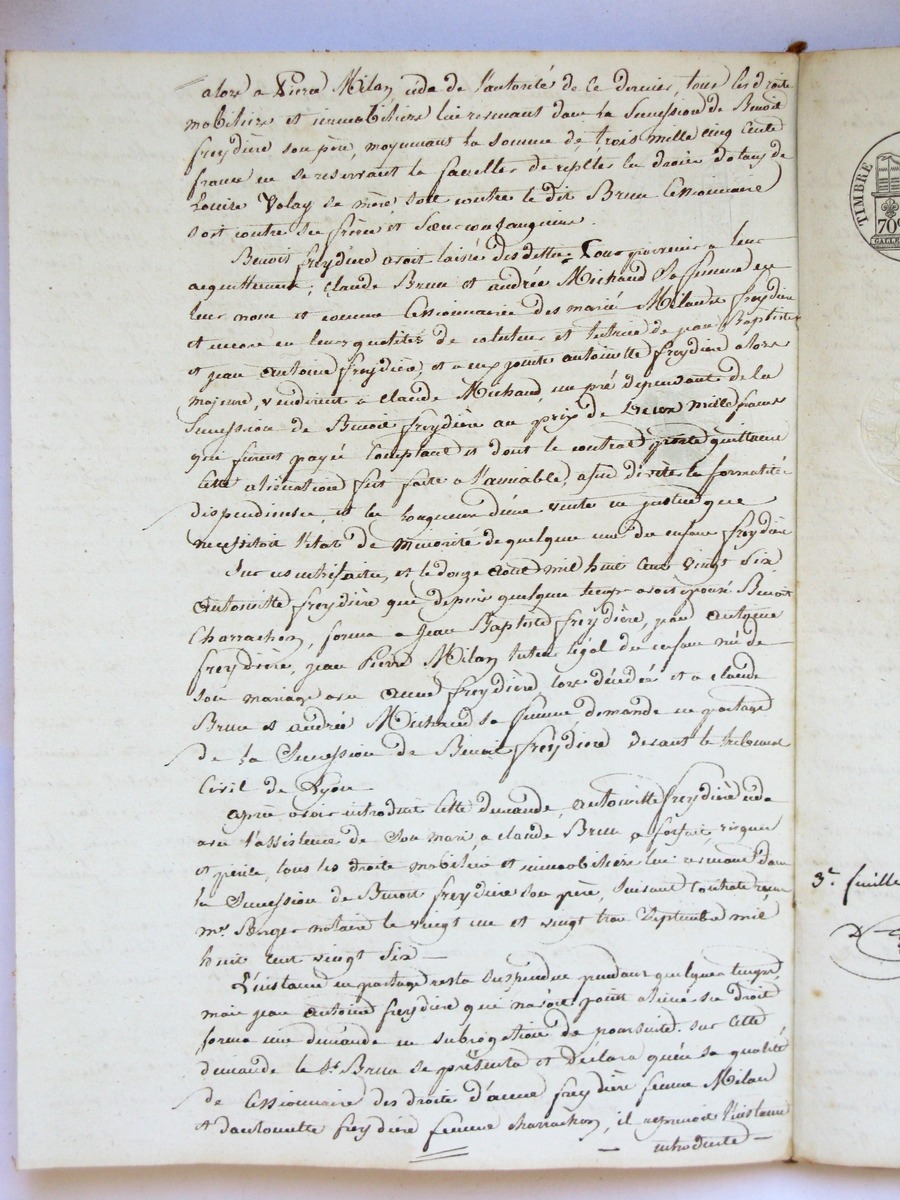 alors a Pierre Milan céda de l'autorité de ce dernier, tous les droits
mobiliers et immobiliers lui revenant dans la Succession de Benoit
freydière son père, moyennant la somme de trois mille cinq cents
francs en se reservant la faculté de répéter les droits dotaux de
Louise Volay sa mère soit contre le dit Brun Cessionnaire
soit contre ses frères et Sœur consanguins.
Benoit freydière avoit laissé des dettes. Pour parvenir a leur
acquittement, Claude Brun et andrée Michaud Sa femme en
leur nom et comme Cessionnaires des mariés Milan et freydière
et encore en leurs qualités de cotuteur et tutrice de jean Baptiste
et jean Antoine freydière, et a eux jointe antoinette freydière alors
majeure, vendirent a Claude Michaud, un pré dependant de la
Succession de Benoit freydière au prix de Deux mille francs
qui furent payés Comptant et dont le contrat porte quittance
Cette aliénation fut faite a l'amiable, afin d'éviter les formalités
dispendieuses, et les longueurs d'une vente en justice que
necessitoit l'état de minorité de quelques uns des enfans freydière
Sur ces entrefaites, et le douze Août mil huit cent vingt Six
Antoinette freydière qui depuis quelque temps avoit épousé Benoit
Charrachon, forma a Jean Baptiste freydière, jean Antoine
freydière, jean Pierre Milan tuteur légal des enfans nés de
son mariage avec Anne freydière lors décédée et a claude
Brun et Andrée Michaud sa femme demande en partage
de la Succession de Benoit freydière devant le tribunal
Civil de Lyon
après avoir introduit cette demande, antoinette freydière céda
avec l'assistence de Son mari a claude Brun a forfait, risques
et périls, tous les droits mobiliers et immobiliers lui revenant dans
la Succession de Benoit freydière son père, suivant Contrats reçus
me. Berger notaire le vingt un et vingt trois Septembre mil
huit cent vingt Six —
L'instance en partage resta Suspendue pendant quelques temps,
mais jean Antoine freydière qui n'avoit point aliéné ses droits
forma une demande en subrogation de poursuite. sur cette
demande le Sr. Brun se présenta et Déclara qu'en sa qualité
de Cessionnaire des droits d'anne freydière femme Milan
et d'antoinette freydière femme charrachon, il reprenoit l'instance
— introduite —
TIMBRE
70c
3e. feuille